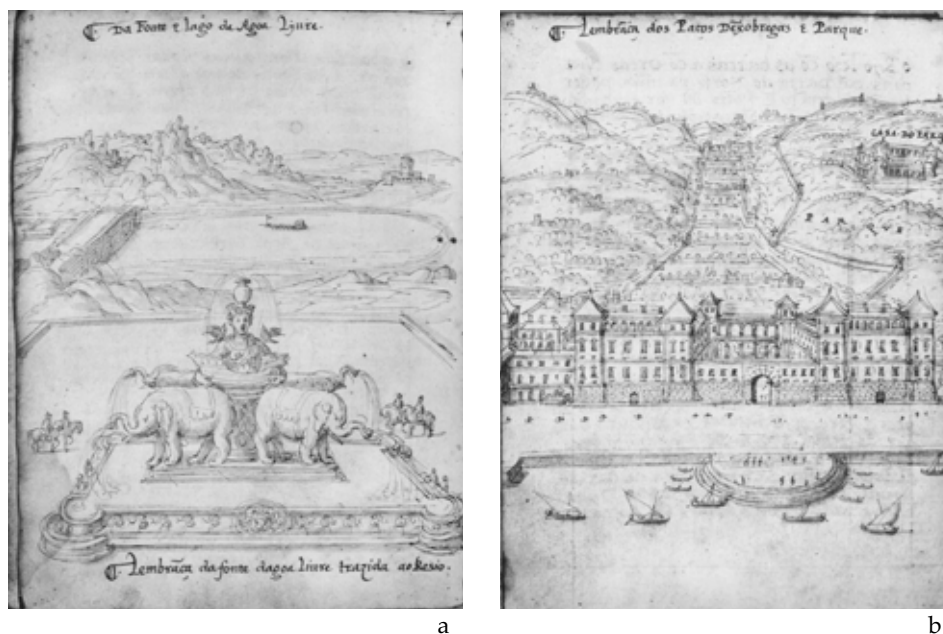 Da Fonte e lago de Agoa Livre.
Lembrãça da fonte dagoa Livre trazida ao Resio.
a
Lembrãça dos Paços Dẽxobregas e Parque.
CASA DO PAR
PAR
QVE
b